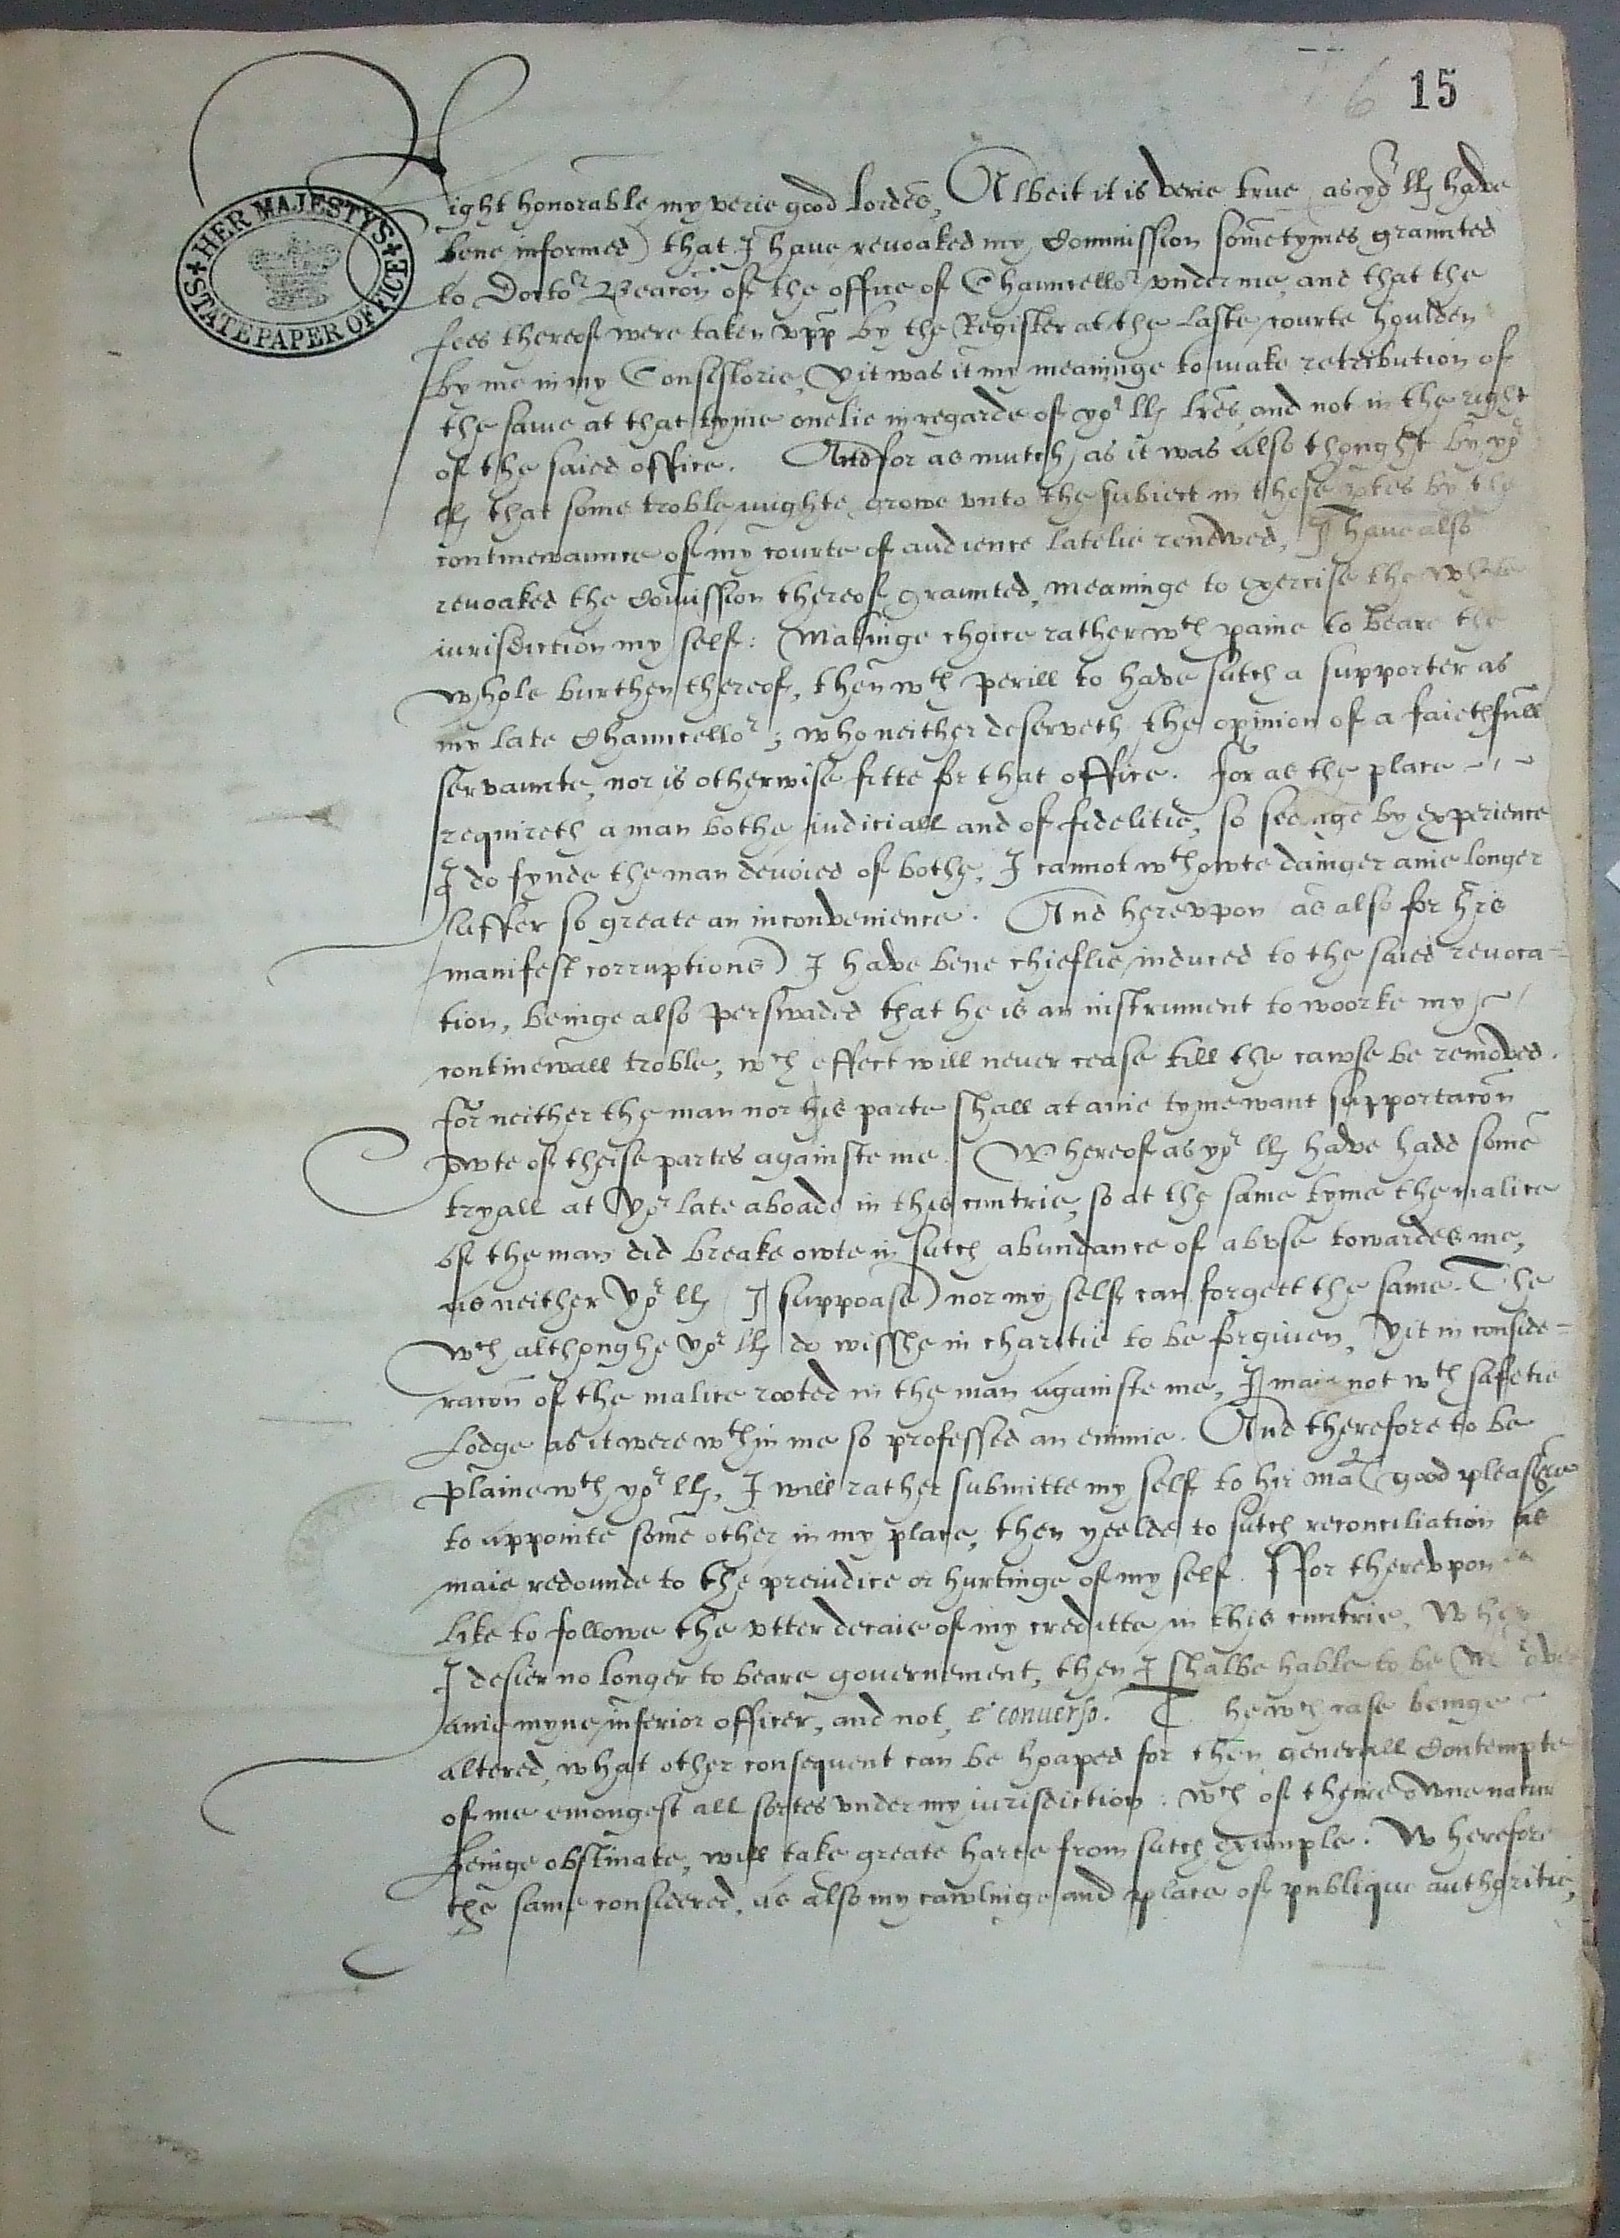 15
HER MAJESTYS
STATE PAPER OFFICE
Right honorable my verie good Lordes, Albeit it is verie true (as yor ll have
bene informed) that I have reuoaked my Commission sometymes graunted
to Doctor Beacon of the office of Chauncellor vnder me, and that the
fees thereof were taken vpp by the Register at the laste courte houlden
by me in my Consistorie, Yit was it my meaninge to make retribution of
the same at that tyme onelie in regarde of yor ll lres, and not in the right
of the saied office. And for as mutch as it was also thought by yor
ll that some troble mighte growe vnto the subiect in these ptes by the
continewaunce of my courte of audience latelie renewed, I have also
reuoaked the Comission thereof graunted, meaninge to exercise the whole
iurisdiction my self: Makinge choice rather wth paine to beare the
whole burthen thereof, then wth perill to have sutch a supporter as
my late Chauncellor; who neither deserveth the opinion of a faiethfull
servaunte, nor is otherwise fitte for that office. For as the place
requireth a man bothe iudiciall and of fidelitie, so seeinge by experience
I do fynde the man deuoied of bothe, I cannot wthowte dainger anie longer
suffer so greate an inconvenience. And herevpon (as also for his
manifest corruptions) I have bene chieflie induced to the saied reuoca=
tion, beinge also perswaded that he is an instrument to woorke my
continewall troble, wch effect will never cease till the cawse be removed.
For neither the man nor his parte shall at anie tyme want supportacon
owte of theise partes againste me. Whereof as yor ll have hadd some
tryall at Yor late aboade in this cuntrie, so at the same tyme the malice
of the man did breake owte in sutch abundance of abvse towardes me,
as neither Yor ll (I suppoase) nor my self can forgett the same. The
wch althoughe Yor ll do wisshe in charitie to be forgiuen, Yit in conside=
racon of the malice rooted in the man againste me, I maie not wth safetie
Lodge as it were wthin me so professed an enimie. And therefore to be
plaine wth yor ll, I will rather submitte my self to her Mats good pleasure
to appointe some other in my place, then yeelde to sutch reconciliation as
maie redounde to the preiudice or hurtinge of my self. Ffor therevpon is
like to followe the vtter decaie of my creditte in this cuntrie. Wher
I desier no longer to beare governement, then I shalbe hable to be over
anie myne inferior officer, and not, è conuerso. The wch case beinge
altered, what other consequent can be hoaped for then generall Contempte
of me emongest all sortes vnder my iurisdiction: wch of theire owne natur
beinge obstinate, will take greate harte from sutch example. Wherefore
the same considered, as also my cawlinge and place of publique authoritie,